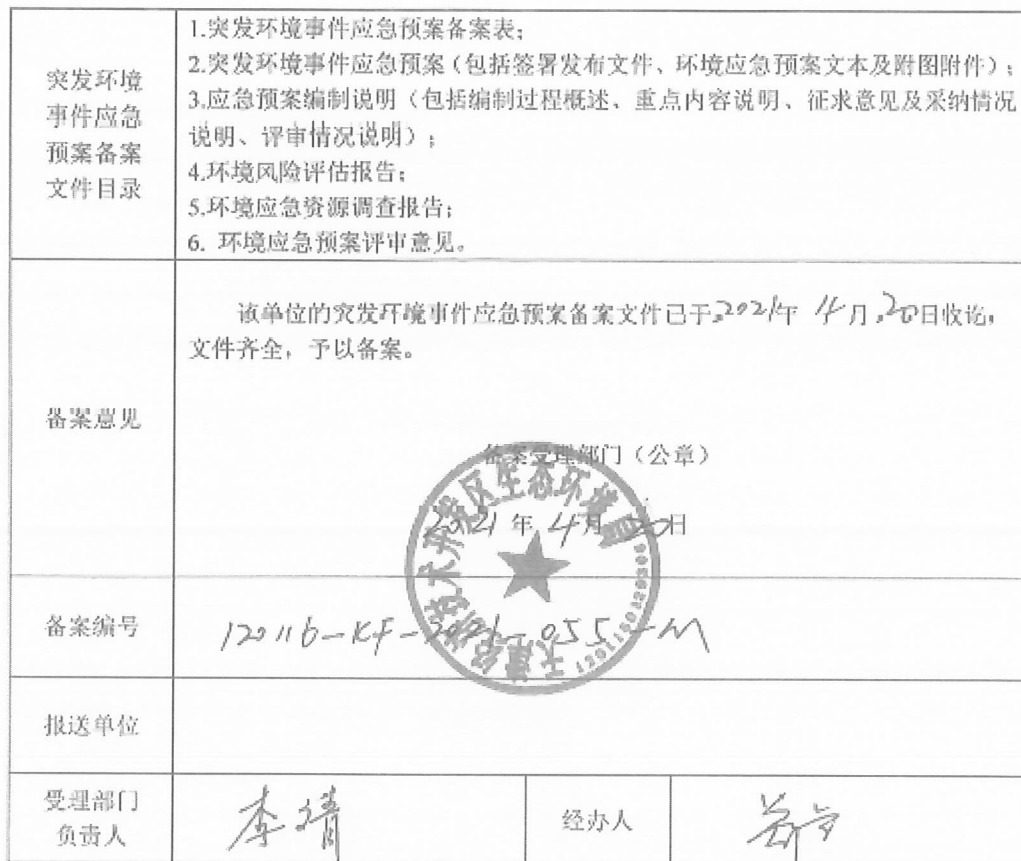 突发环境
事件应急
预案备案
文件目录
1.突发环境事件应急预案备案表；
2.突发环境事件应急预案（包括签署发布文件、环境应急预案文本及附图附件）；
3.应急预案编制说明（包括编制过程概述、重点内容说明、征求意见及采纳情况
说明、评审情况说明）；
4.环境风险评估报告；
5.环境应急资源调查报告；
6. 环境应急预案评审意见。
备案意见
该单位的突发环境事件应急预案备案文件已于2021年 4月20日收讫，
文件齐全，予以备案。
备案受理部门（公章）
2021 年 4月20日
天津经济技术开发区生态环境局
备案编号
120116-KF-2021-055-M
报送单位
受理部门
负责人
李靖
经办人